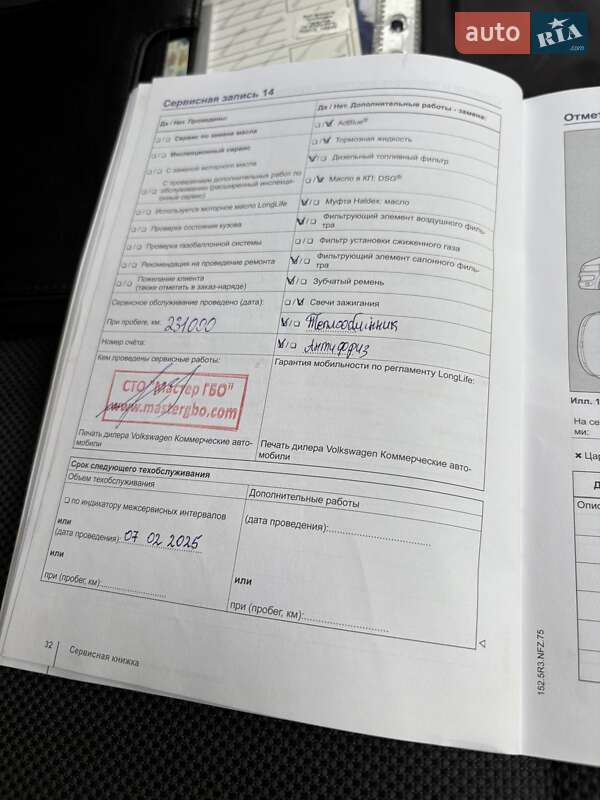 auto RIA.com
Сервисная запись 14
Да / Нет. Проведены:
Да / Нет. Дополнительные работы - замена:
Сервис по замене масла
AdBlue®
Инспекционный сервис
Тормозная жидкость
С заменой моторного масла
Дизельный топливный фильтр
С проведением дополнительных работ по
обслуживанию (расширенный инспекци-
онный сервис)
Масло в КП: DSG®
Используется моторное масло LongLife
Муфта Haldex: масло
Проверка состояния кузова
Фильтрующий элемент воздушного филь-
тра
Проверка газобаллонной системы
Фильтр установки сжиженного газа
Рекомендация на проведение ремонта
Фильтрующий элемент салонного филь-
тра
Пожелание клиента
(также отметить в заказ-наряде)
Зубчатый ремень
Сервисное обслуживание проведено (дата):
Свечи зажигания
При пробеге, км: 231000
Теплообмінник
Номер счёта:
Антифриз
Кем проведены сервисные работы:
Гарантия мобильности по регламенту LongLife:
СТО "Мастер ГБО"
www.mastergbo.com
Печать дилера Volkswagen Коммерческие авто-
мобили
Печать дилера Volkswagen Коммерческие авто-
мобили
Срок следующего техобслуживания
Объем техобслуживания
Дополнительные работы
по индикатору межсервисных интервалов
или
(дата проведения): 07 02 2025
(дата проведения):
или
или
при (пробег, км):
при (пробег, км):
32
Сервисная книжка
152.5R3.NFZ.75
Отмет
Илл. 1
На се
ми:
Цар
Д
Опис